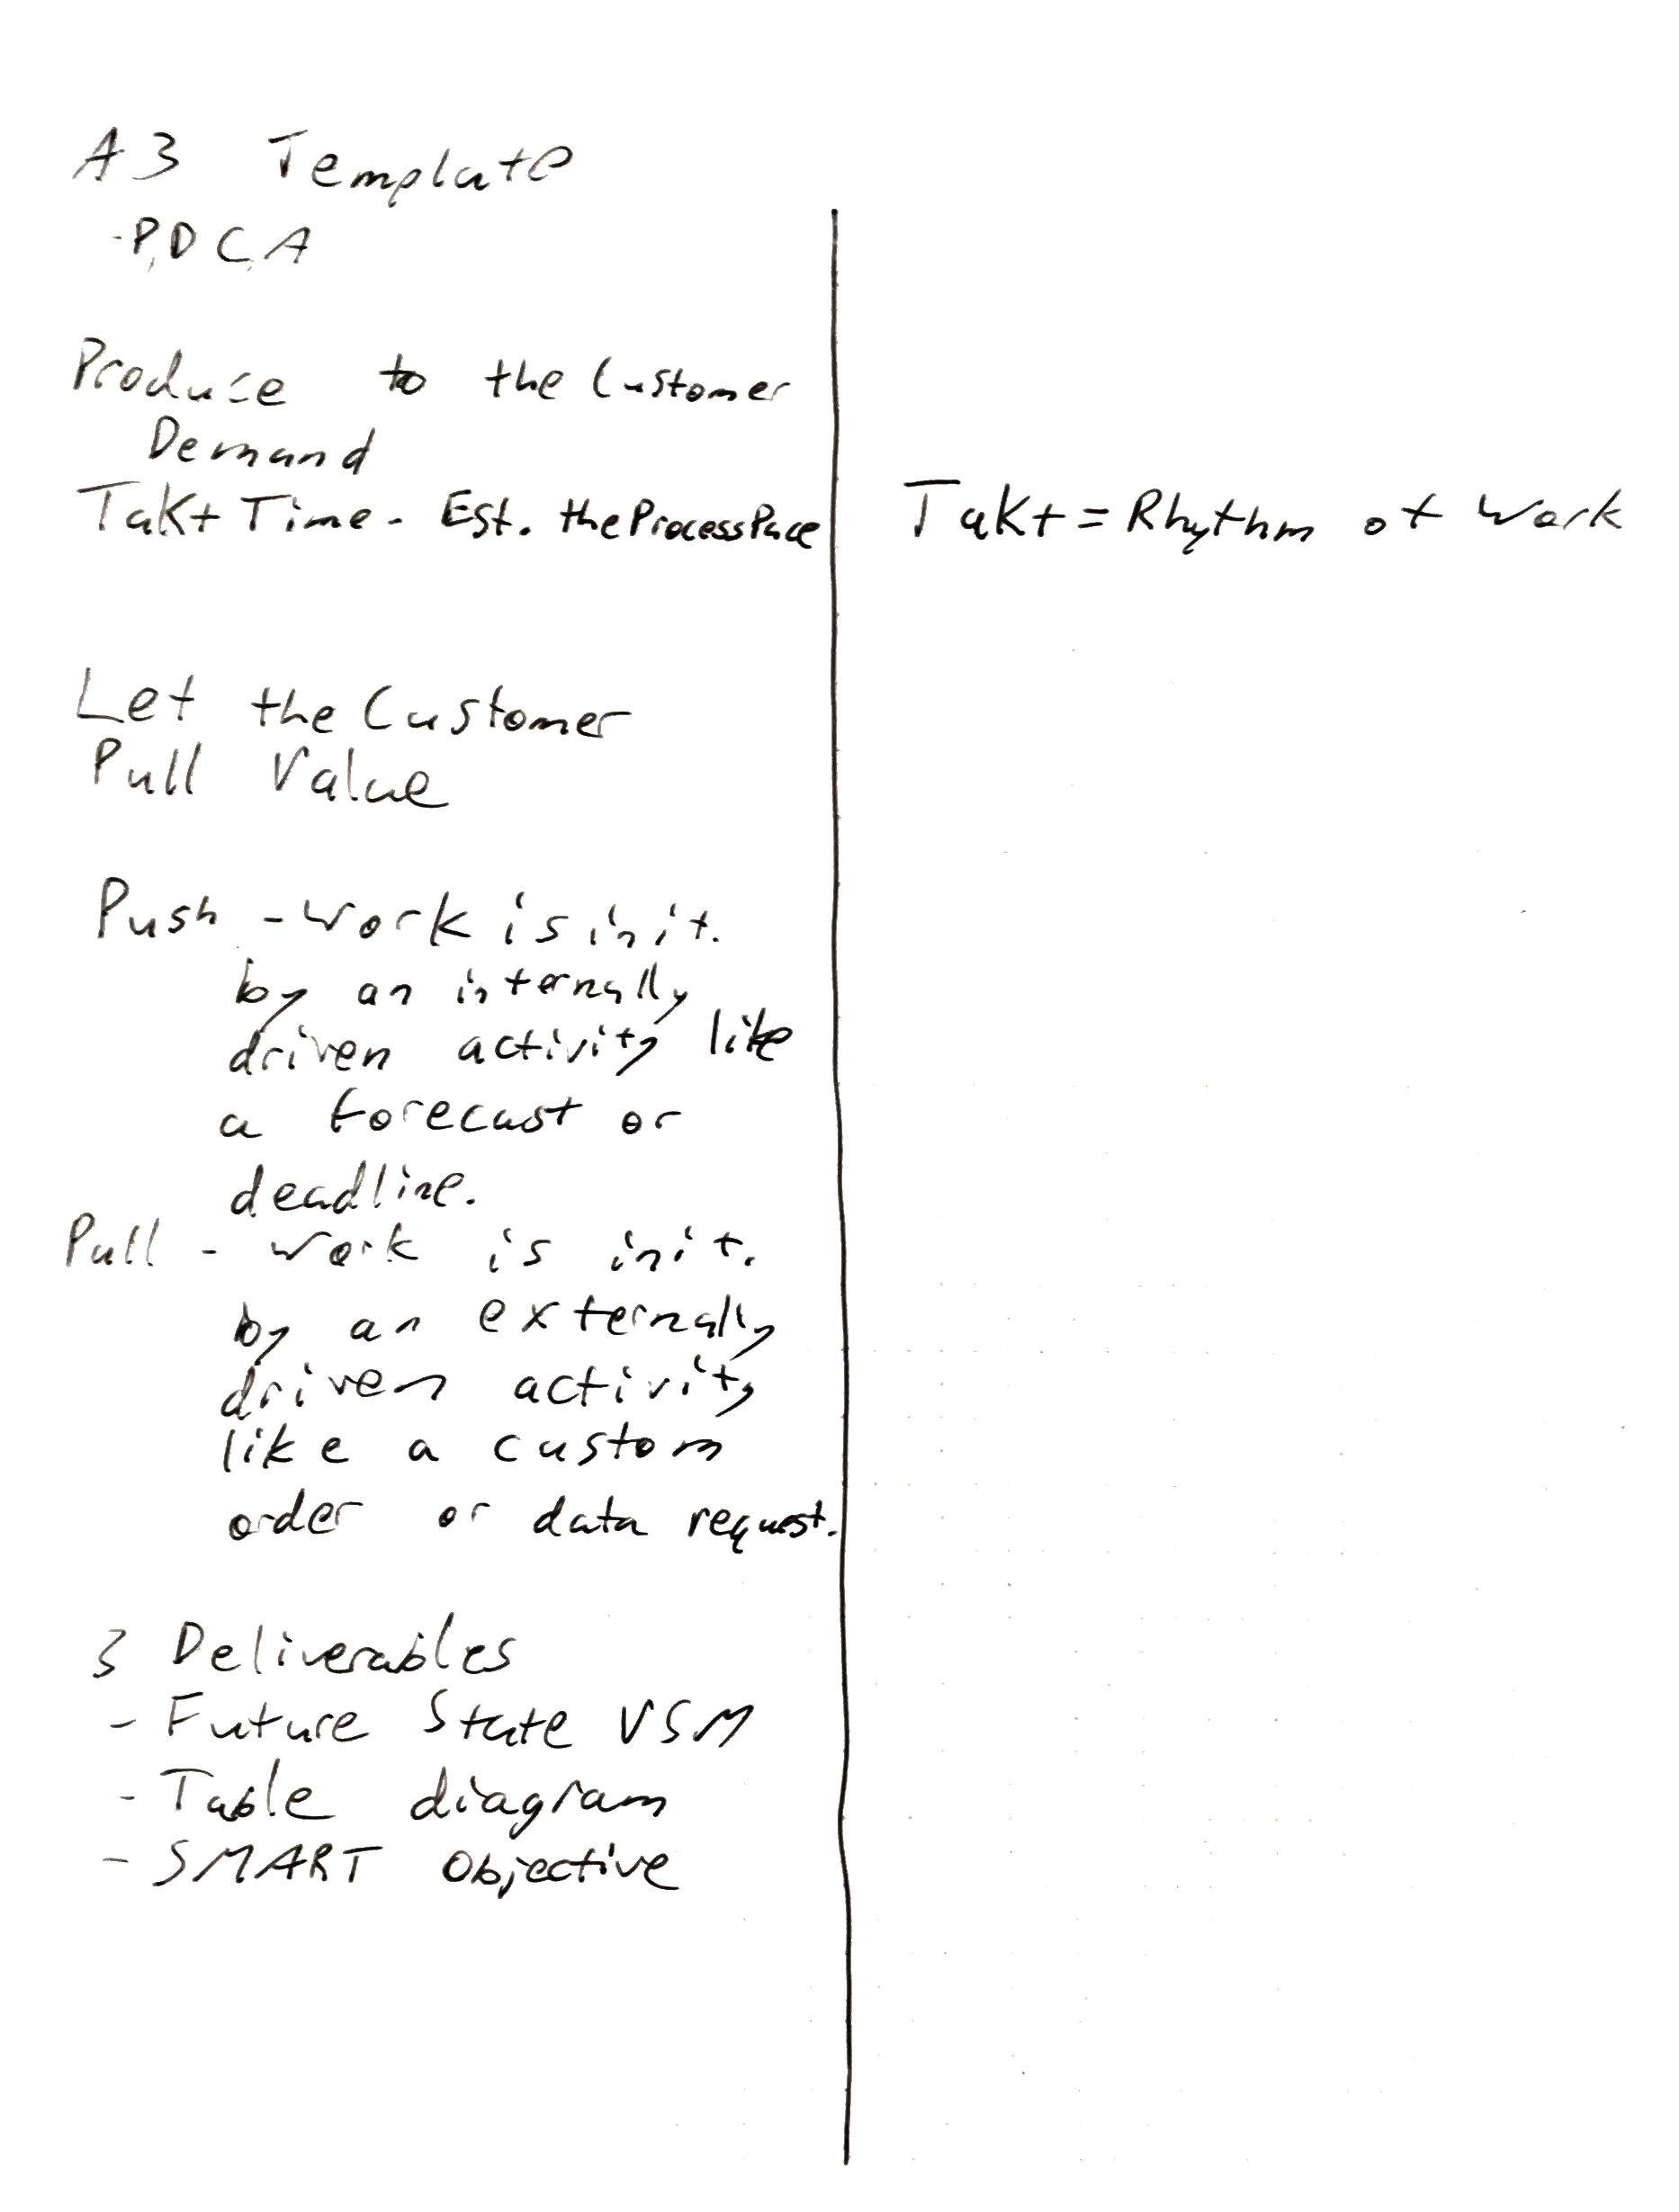 A3 Template
- P, D C, A
Produce to the Customer
Demand
Takt Time - Est. the Process Pace
Takt = Rhythm of Work
Let the Customer
Pull Value
Push - Work is init.
by an internally
driven activity like
a forecast or
deadline.
Pull - Work is init.
by an externally
driven activity
like a custom
order or data request.
3 Deliverables
- Future State VSM
- Table diagram
- SMART Objective